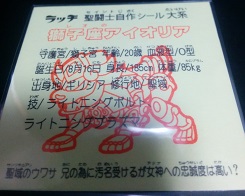 ラッチ 聖闘士自作シール大系
獅子座アイオリア
守護宮/獅子宮 年齢/20歳 血液型/O型
誕生日/8月16日 身長/185cm 体重/85kg
出身地/ギリシア 修行地/聖域
技/ライトニングボルト
ライトニングプラズマ
聖域のウワサ 兄の為に汚名受けるが女神への忠誠度は高い?